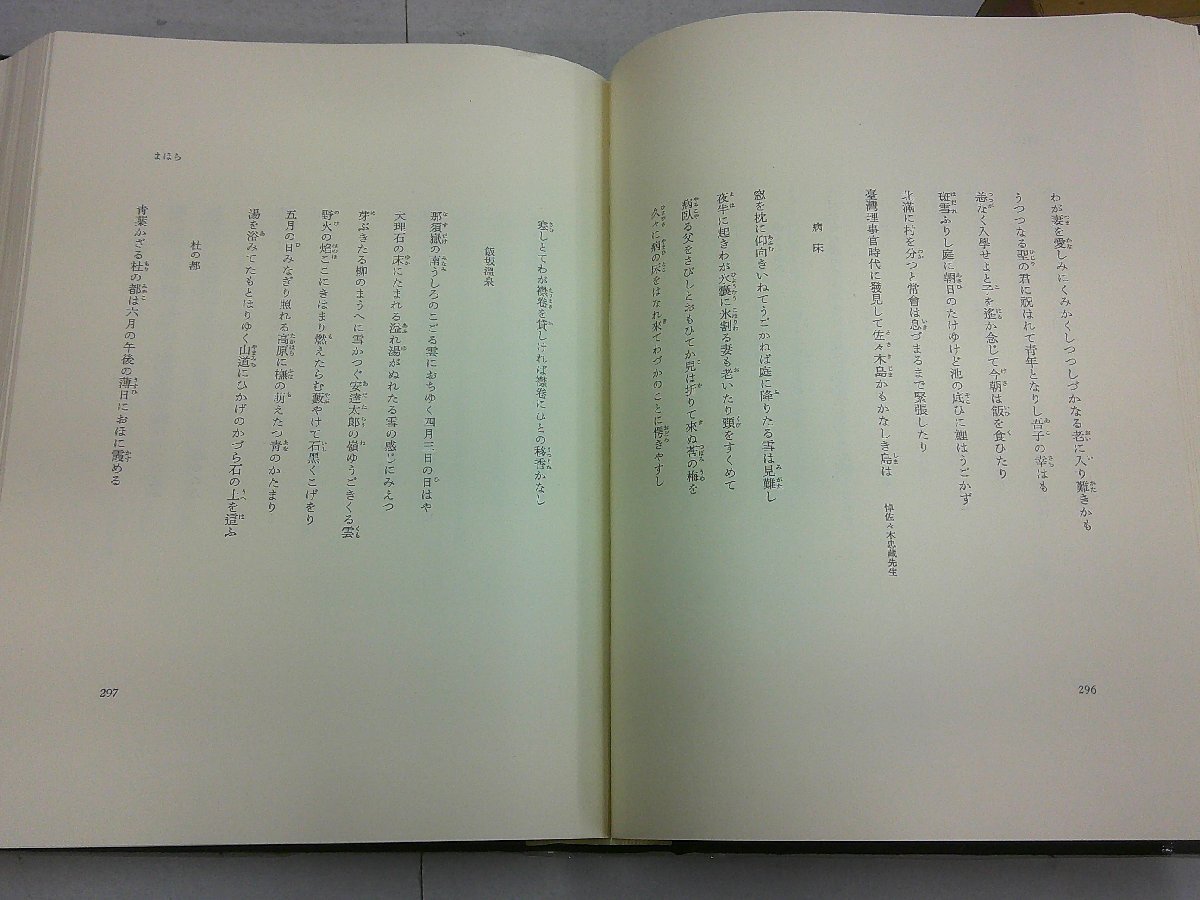 わが妻を愛しみにくみかくしつつしづかなる老に入り難きかも
うつつなる聖の君に祝はれて青年となりし吾子の幸はも
恙なく入學せよと子を遙か念じて今朝は飯を食ひたり
斑雪ふりし庭に朝日のたけゆけど池の底ひに鯉はうごかず
北滿に村を分つと常會は息づまるまで緊張したり
臺灣理事官時代に發見して佐々木島かもかなしき島は
悼佐々木忠藏先生
病床
窓を枕に仰向きいねてうごかれば庭に降りたる雪は見難し
夜半に起きわが氷嚢に氷割る妻も老いたり頸をすくめて
病臥る父をさびしとおもひてか兒は折りて來ぬ莟の梅を
久々に病の床をはなれ來てわづかのことに愕きやすし
296
寒しとてわが襟卷を貸しければ襟卷にひとの移香かなし
飯坂溫泉
那須嶽の南うしろのこごる雲におちゆく四月三日の日はや
大理石の床にたまれる溢れ湯がぬれたる雪の感じにみえつ
芽ぶきたる柳のまうへに雪かつぐ安達太郎の嶺ゆうごきくる雲
野火の焰ここにきはまり燃えたらむ藪やけて石黑くこげをり
五月の日みなぎり照れる高原に橅の萌えたつ靑のかたまり
湯を浴みてたもとほりゆく山道にひかげのかづら石の上を這ふ
杜の都
靑葉かざる杜の都は六月の午後の薄日におほに霞める
まほら
297